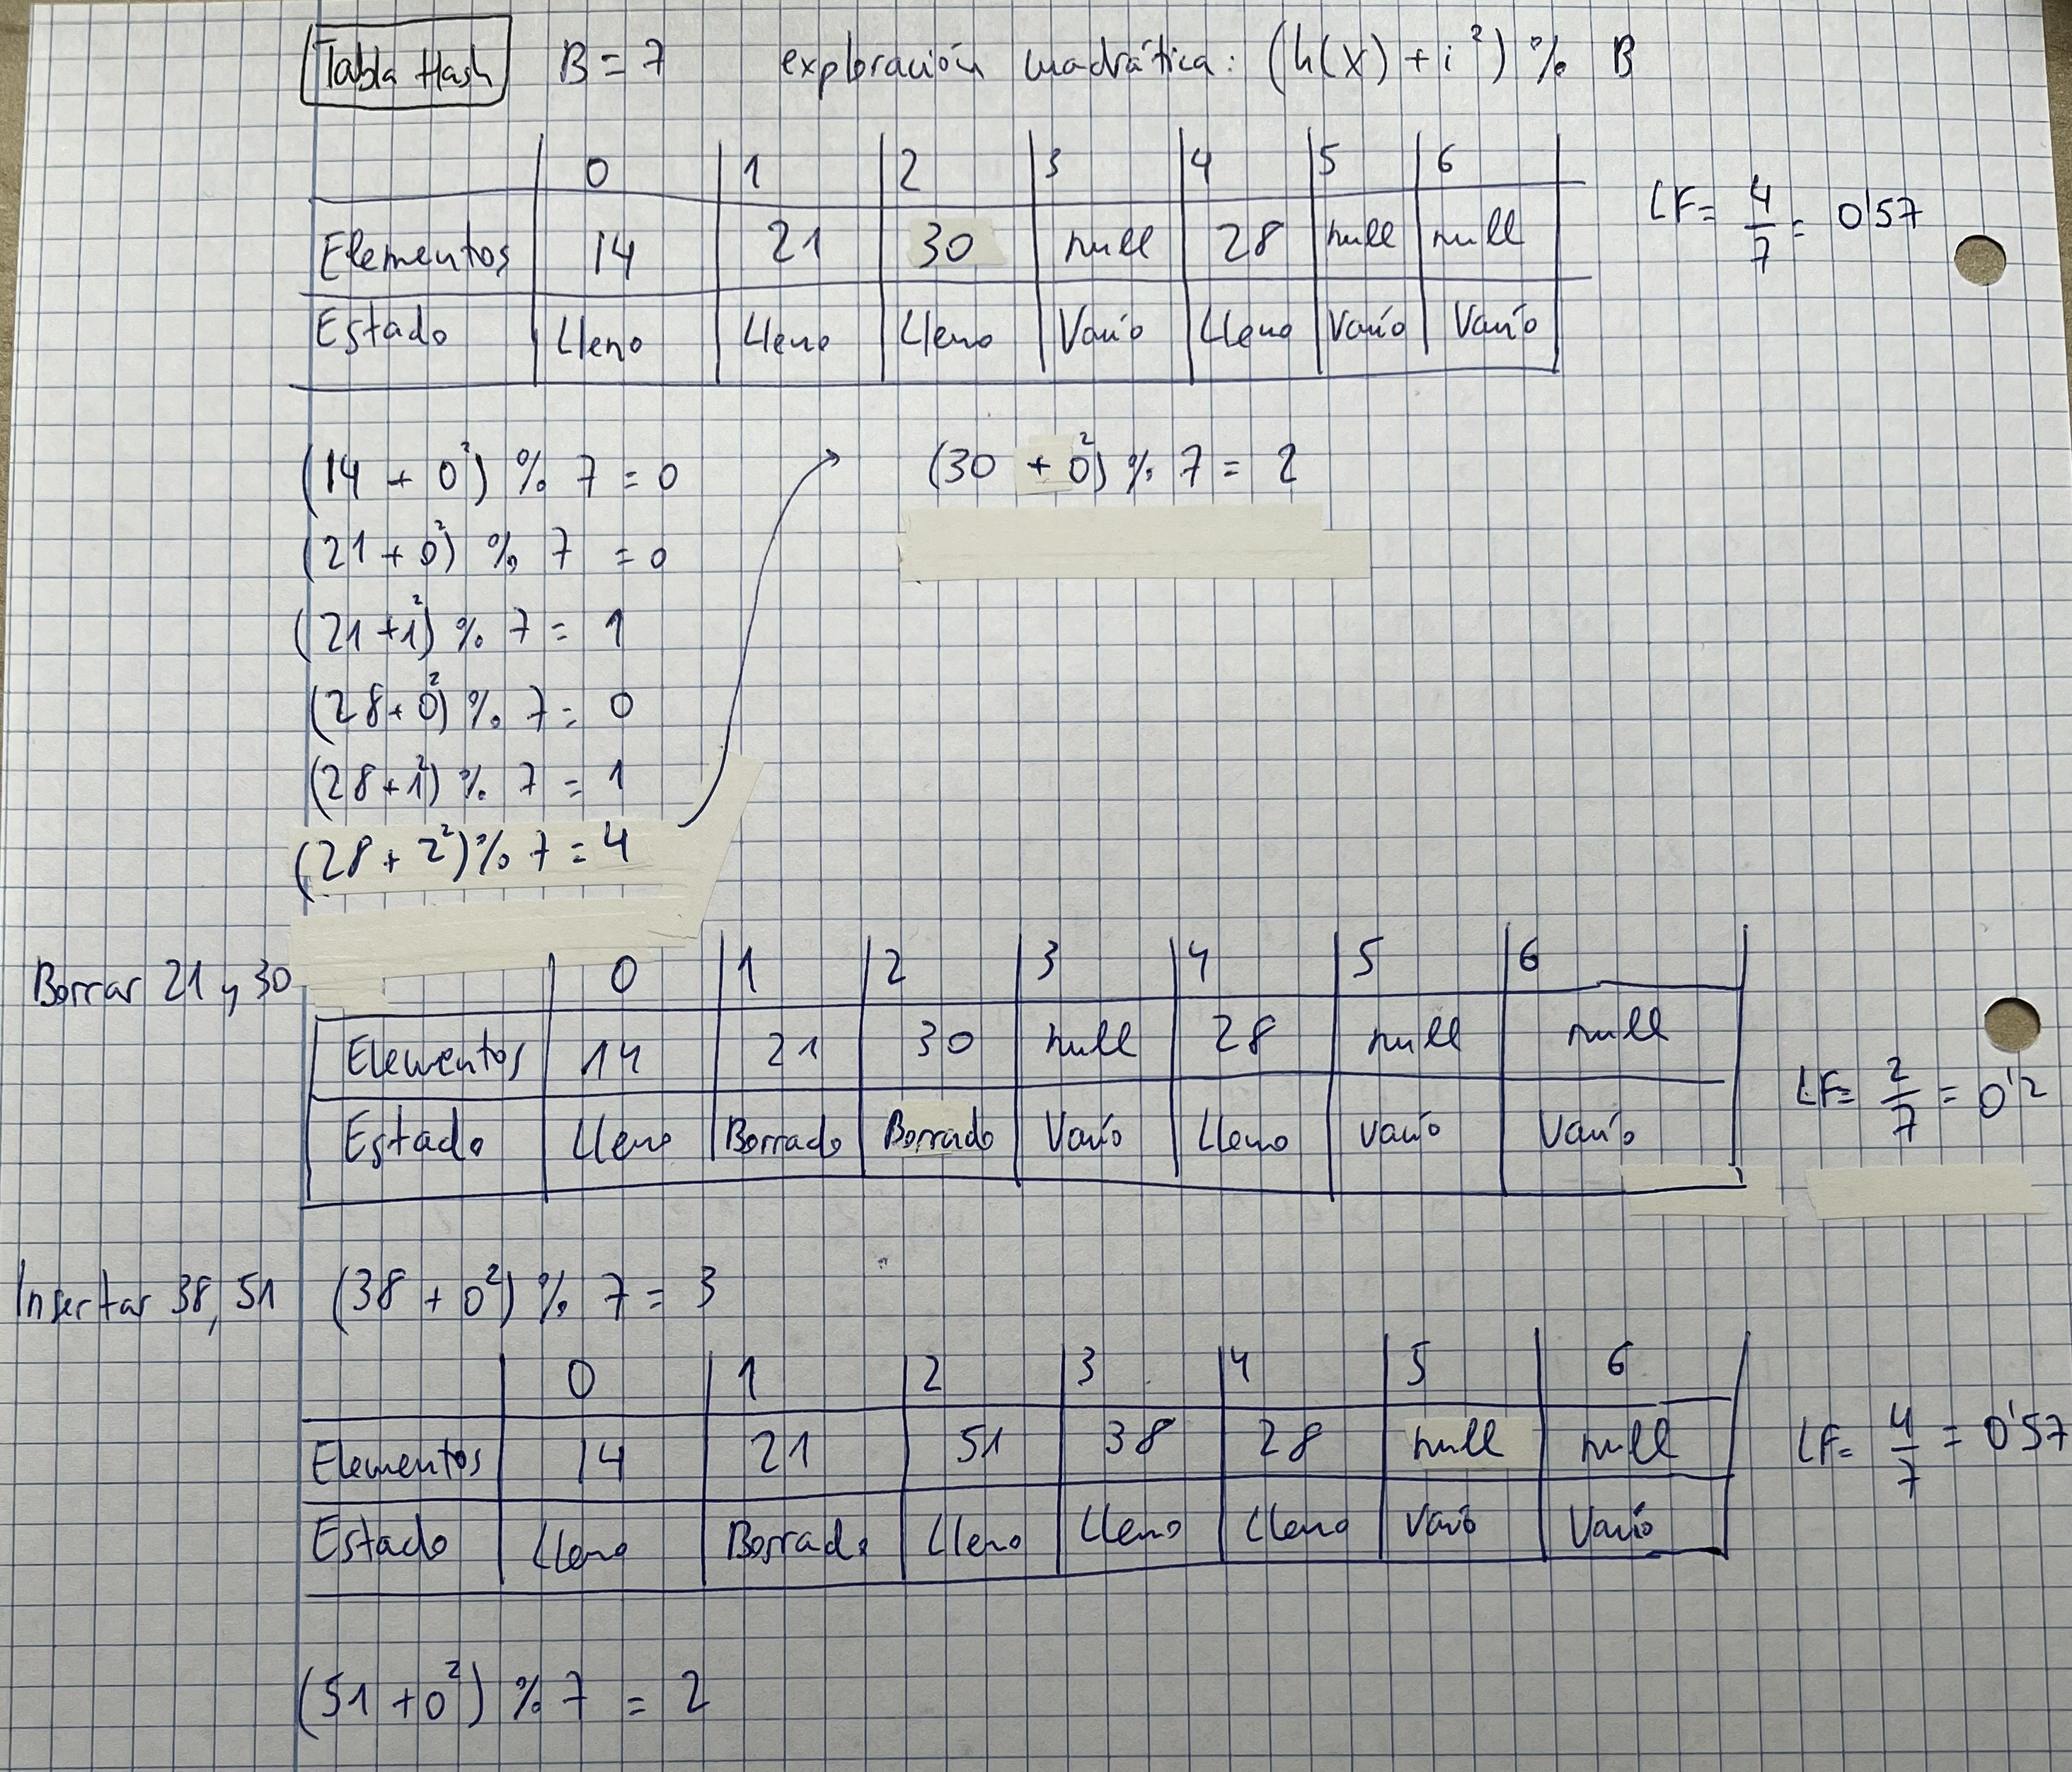 Tabla Hash B = 7 exploración cuadrática: (h(x) + i²) % B
0 1 2 3 4 5 6
Elementos 14 21 30 null 28 null null
Estado Lleno Lleno Lleno Vacío Lleno Vacío Vacío
LF = 4/7 = 0'57
(14 + 0²) % 7 = 0
(21 + 0²) % 7 = 0
(21 + 1²) % 7 = 1
(28 + 0²) % 7 = 0
(28 + 1²) % 7 = 1
(28 + 2²) % 7 = 4
(30 + 0²) % 7 = 2
Borrar 21 y 30
0 1 2 3 4 5 6
Elementos 14 21 30 null 28 null null
Estado Lleno Borrado Borrado Vacío Lleno Vacío Vacío
LF = 2/7 = 0'2
Insertar 38, 51 (38 + 0²) % 7 = 3
0 1 2 3 4 5 6
Elementos 14 21 51 38 28 null null
Estado Lleno Borrado Lleno Lleno Lleno Vacío Vacío
LF = 4/7 = 0'57
(51 + 0²) % 7 = 2